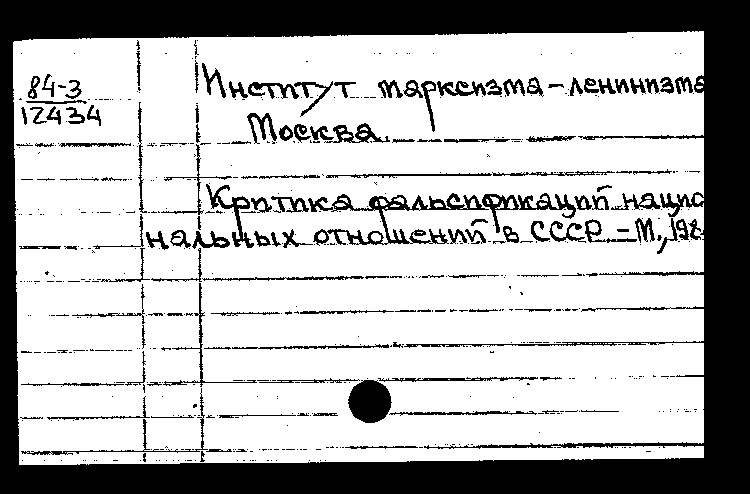 84-3
12434
Институт марксизма-ленинизма
Москва.
Критика фальсификаций нацио
нальных отношений в СССР - М., 198